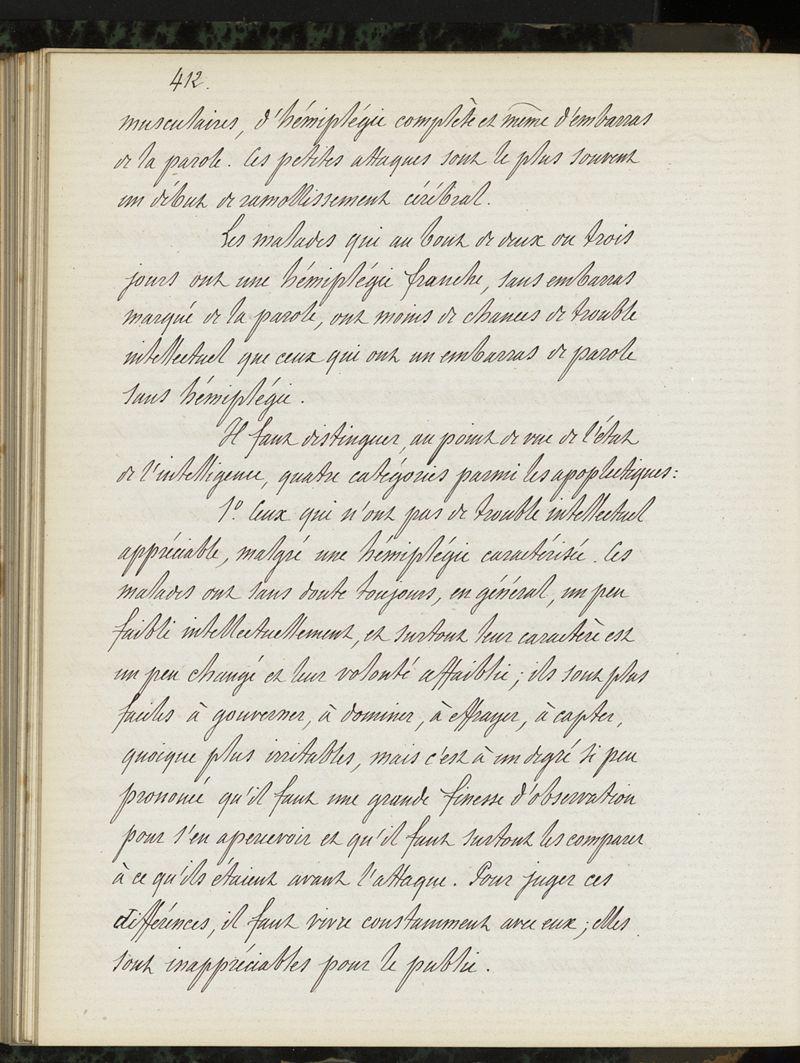 412.
musculaires, d'hémiplégie complète et même d'embarras
de la parole. Ces petites attaques sont le plus souvent
un début de ramollissement cérébral.
Les malades qui au bout de deux ou trois
jours ont une hémiplégie franche, sans embarras
marqué de la parole, ont moins de chances de trouble
intellectuel que ceux qui ont un embarras de parole
sans hémiplégie.
Il faut distinguer, au point de vue de l'état
de l'intelligence, quatre catégories parmi les apoplectiques:
1º. Ceux qui n'ont pas de trouble intellectuel
appréciable, malgré une hémiplégie caractérisée. Ces
malades ont sans doute toujours, en général, un peu
faibli intellectuellement, et surtout leur caractère est
un peu changé et leur volonté affaiblie; ils sont plus
faciles à gouverner, à dominer, à effrayer, à capter,
quoique plus irritables, mais c'est à un degré si peu
prononcé qu'il faut une grande finesse d'observation
pour s'en apercevoir et qu'il faut surtout les comparer
à ce qu'ils étaient avant l'attaque. Pour juger ces
différences, il faut vivre constamment avec eux; elles
sont inappréciables pour le public.